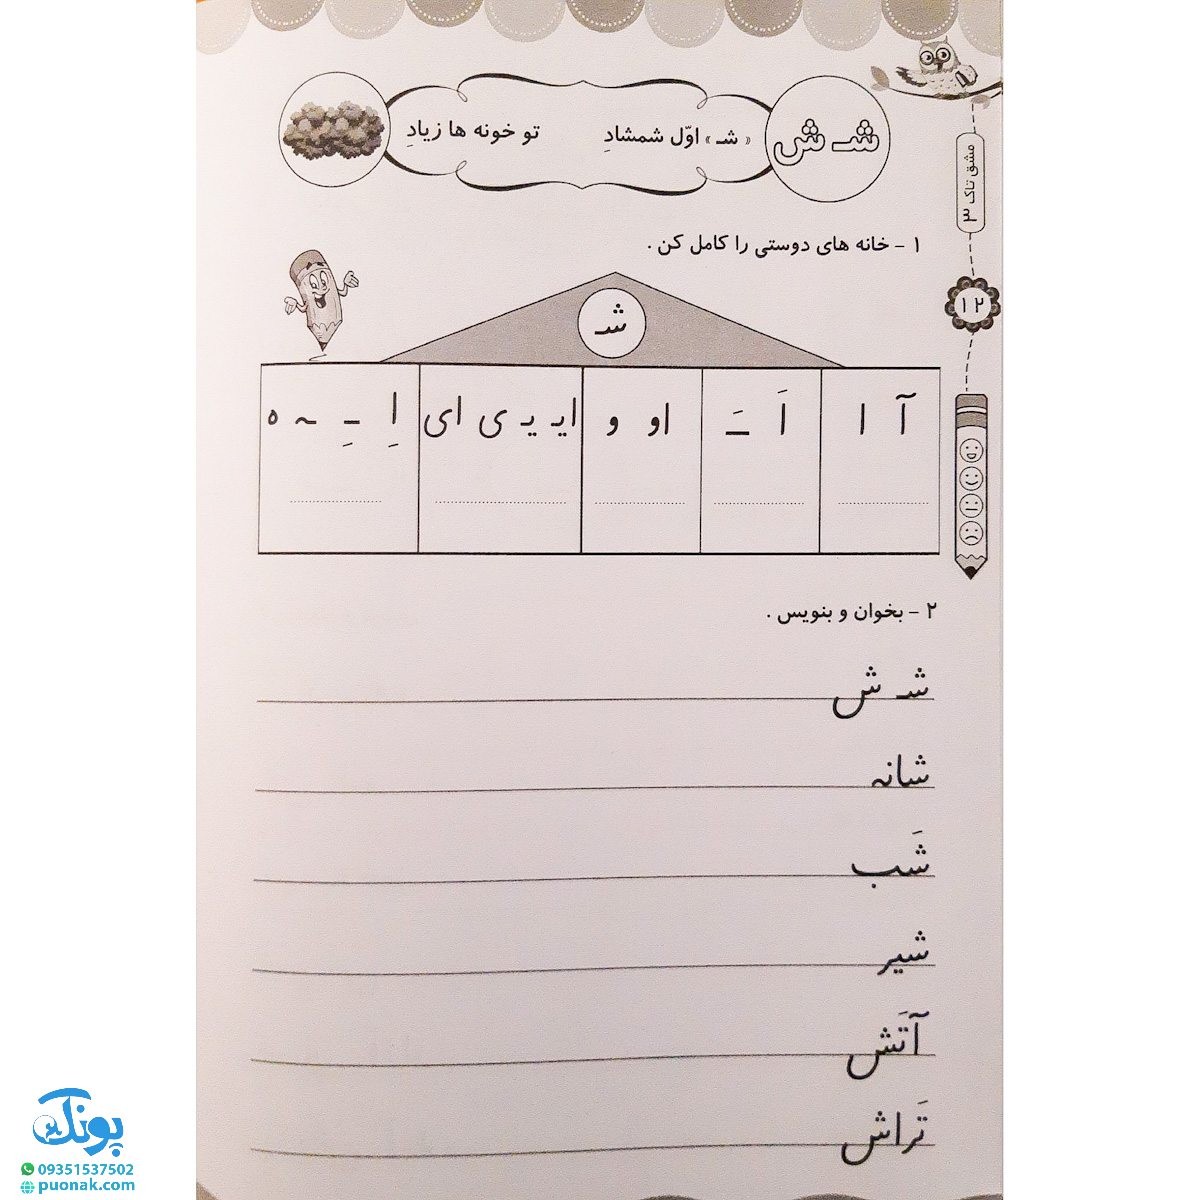 شـ ش
« شـ » اوّل شمشادِ    تو خونه ها زیادِ
مشق تاک ۳
۱ - خانه های دوستی را کامل کن .
۱۲
شـ
آ ا
اَ ـَ
او و
ایـ یـ ی ای
اِ ـِ ـه ه
۲ - بخوان و بنویس .
شـ ش
شانه
شَب
شیر
آتَش
تَراش
پونک
09351537502
puonak.com